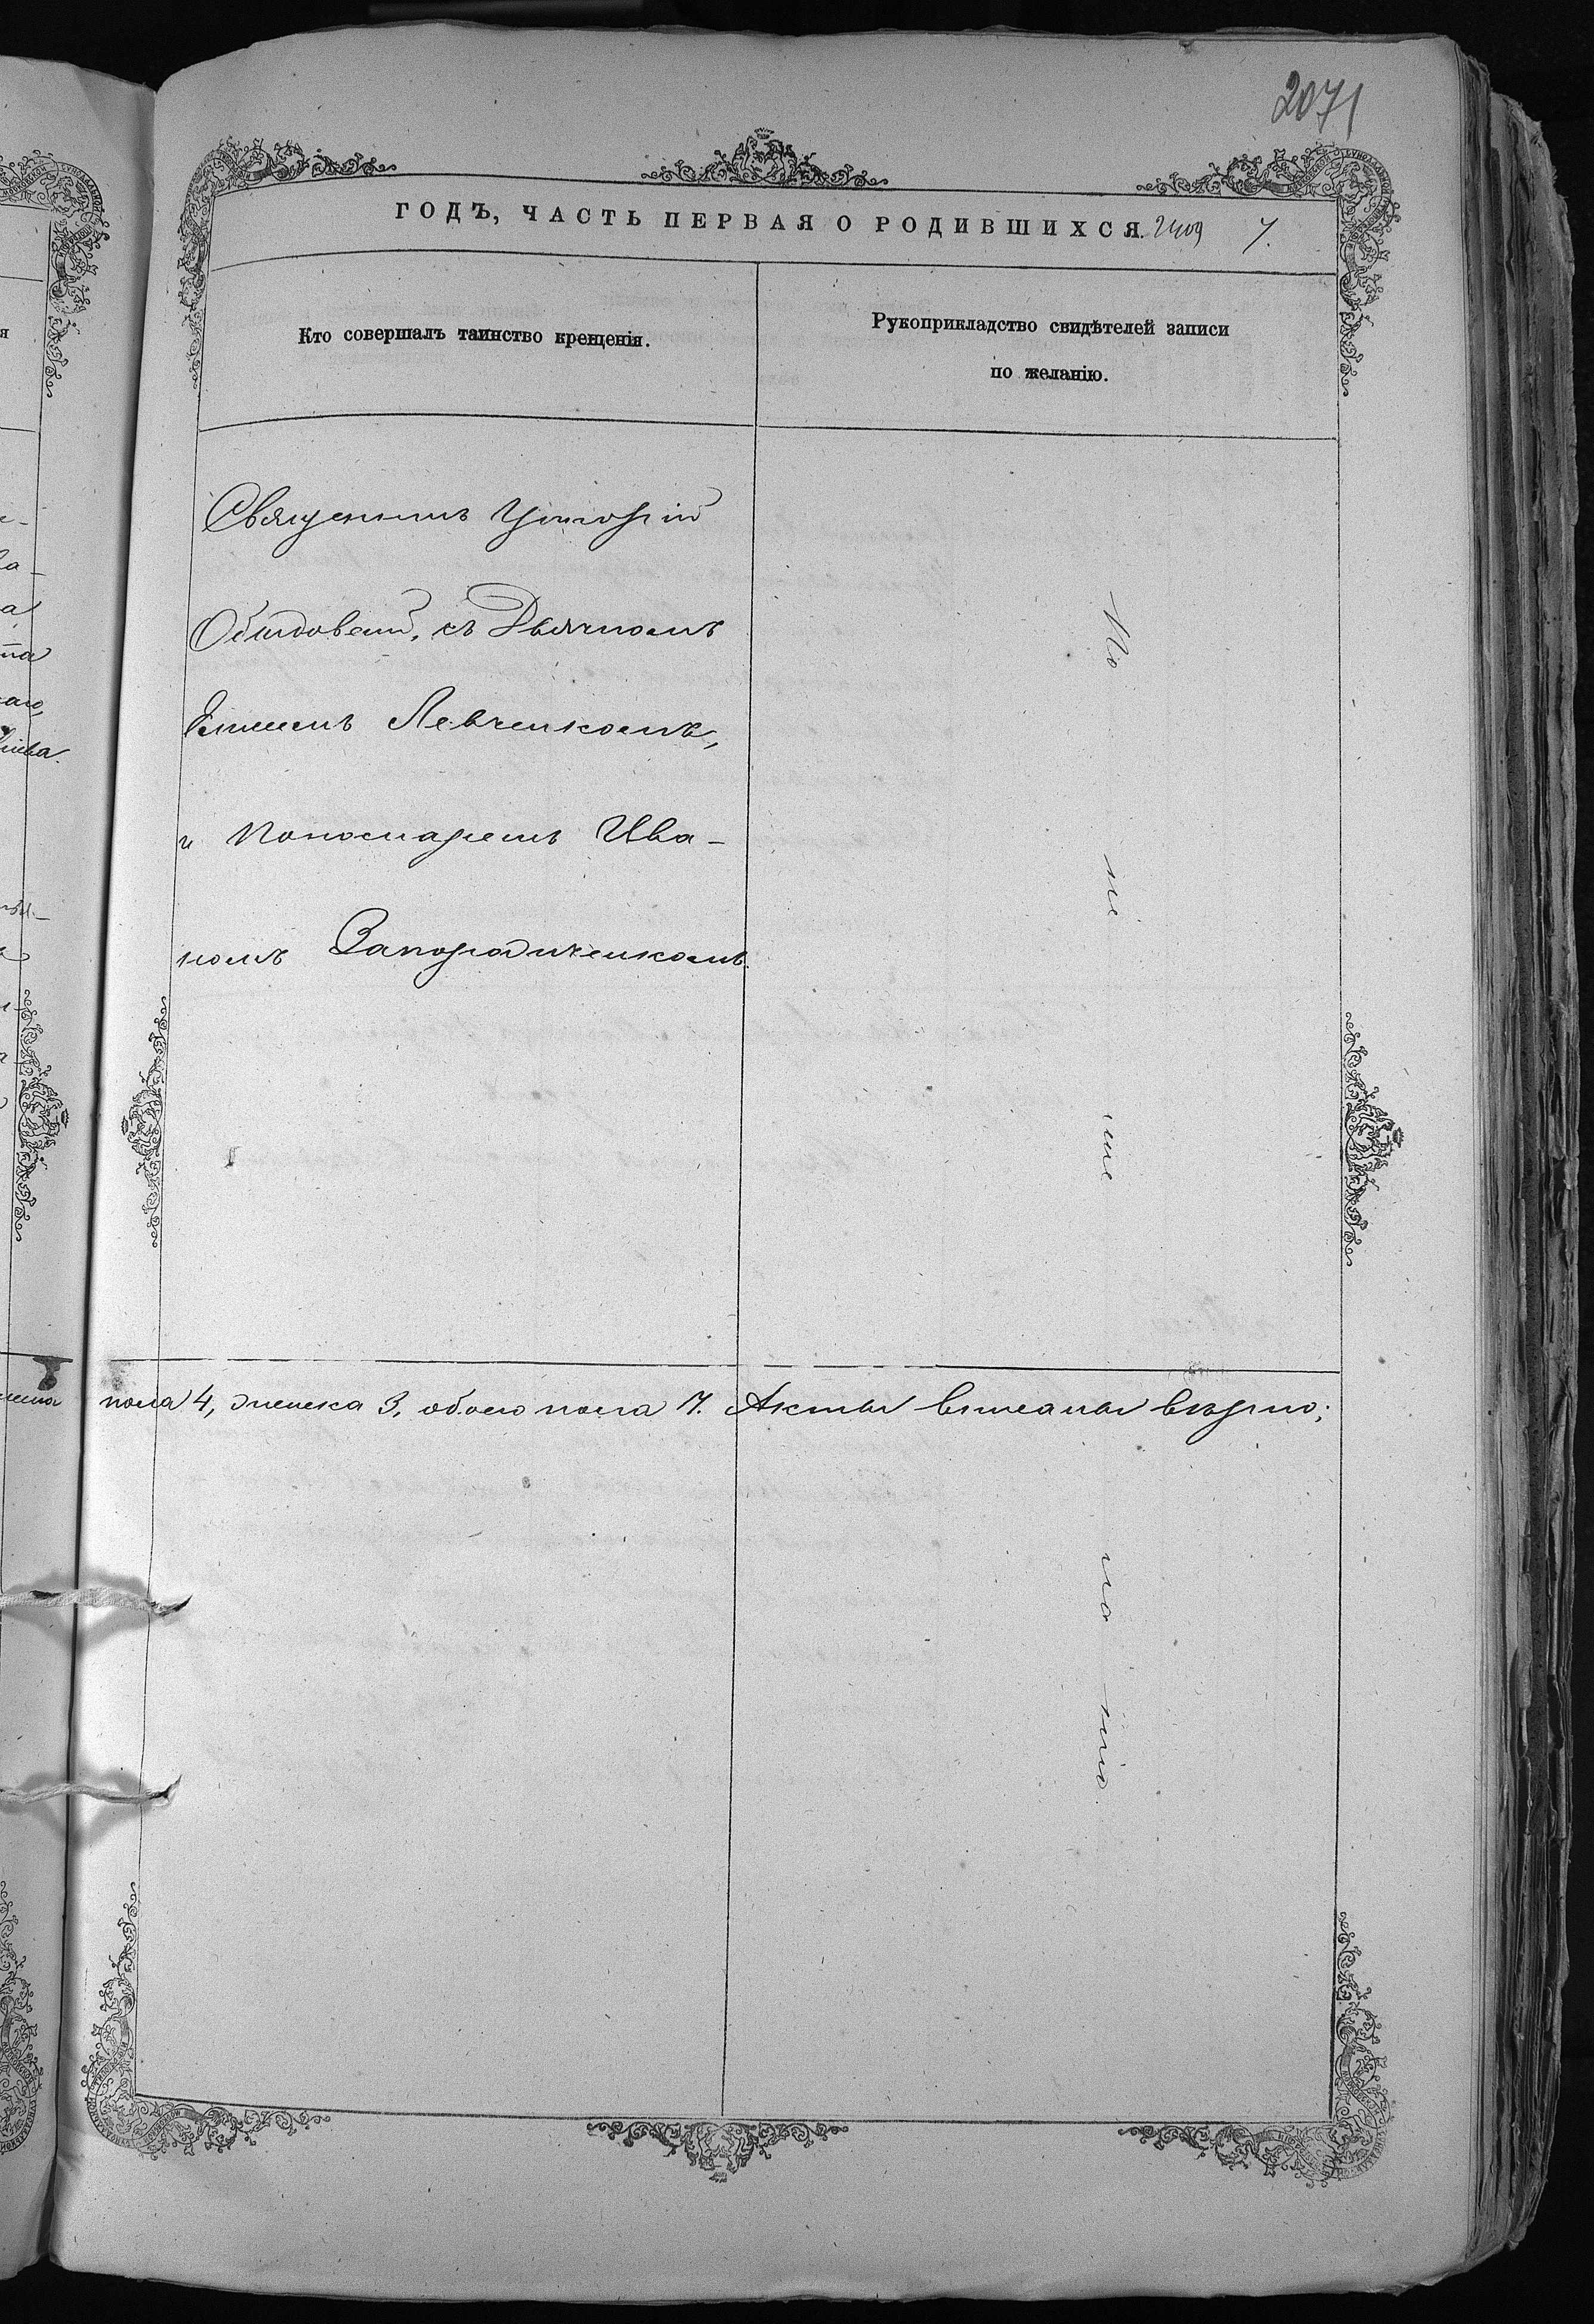 2071
ГОДЪ, ЧАСТЬ ПЕРВАЯ О РОДИВШИХСЯ. 2409 7.
Кто совершалъ таинство крещенія.
Рукоприкладство свидѣтелей записи
по желанію.
Священникъ Григорій
съ Дьячкомъ
Левченкомъ,
и Пономаремъ Ива-
номъ
По
не
име
нію
пола 4, женска 3, обоего пола 7. Акты вписаны вѣрно;